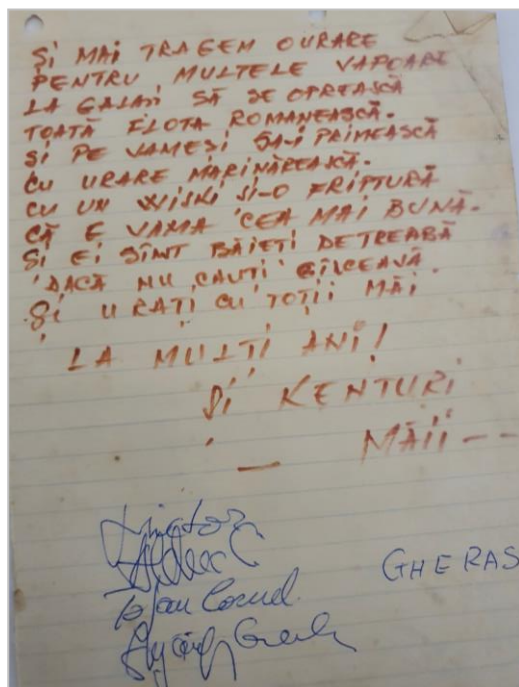 ȘI MAI TRAGEM O URARE
PENTRU MULTELE VAPOARE
LA GALAȚI SĂ SE OPREASCĂ
TOATĂ FLOTA ROMANEASCĂ.
ȘI PE VAMEȘI SA-I PRIMEASCĂ
CU URARE MARINĂREASCĂ.
CU UN WISKI SI-O FRIPTURĂ
CĂ E VAMA CEA MAI BUNĂ.
ȘI EI SÎNT BĂIEȚI DE TREABĂ
DACĂ NU CAUȚI GÎLCEAVĂ.
ȘI URAȚI CU TOȚII MĂI
LA MULȚI ANI!
ȘI KENTURI
MĂII--
Cornel
GHERAS